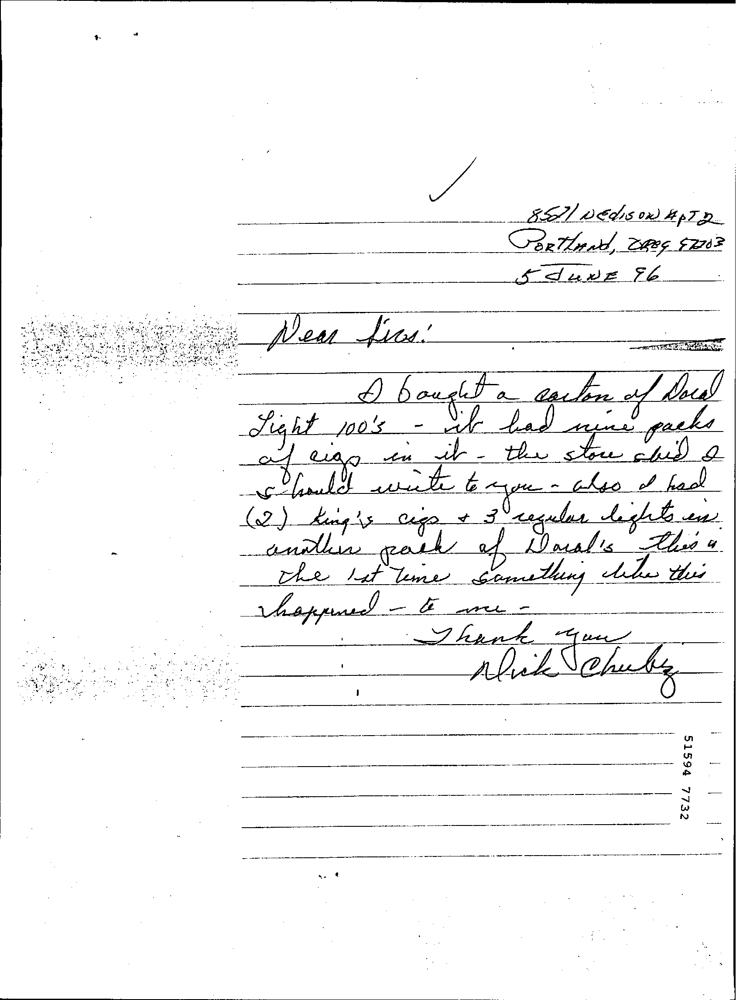 Apt 2
Portland, Oreg
5 June 96
Dear Sirs!
I bought a carton of Doral
Light 100's - it had nine packs
of cigs in it - the store said I
should write to you - also I had
(2) King's cigs + 3 regular lights in
another pack of Doral's this is
the 1st time something like this
happened - to me -
Thank you
Dick
51594 7732